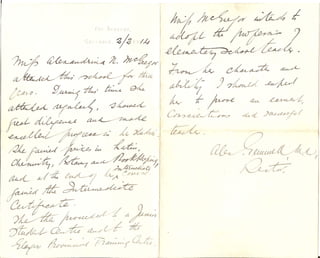 2/3/14
Miss Alexandrina N. McGregor
attended this school for three
years. During this time she
attended regularly, showed
great diligence and made
excellent progress in her studies.
She gained prizes in Latin,
Chemistry, Botany and Book-Keeping,
and at the end of her Intermediate course
gained the Intermediate
Certificate.
She then proceeded to a Junior
Student Centre and to the
Glasgow Provincial Training Centre.
Miss McGregor intends to
adopt the profession of
elementary school teacher.
From her character and
ability I should expect
her to prove an earnest,
conscientious and successful
teacher.
Alex M.A.,
Rector.